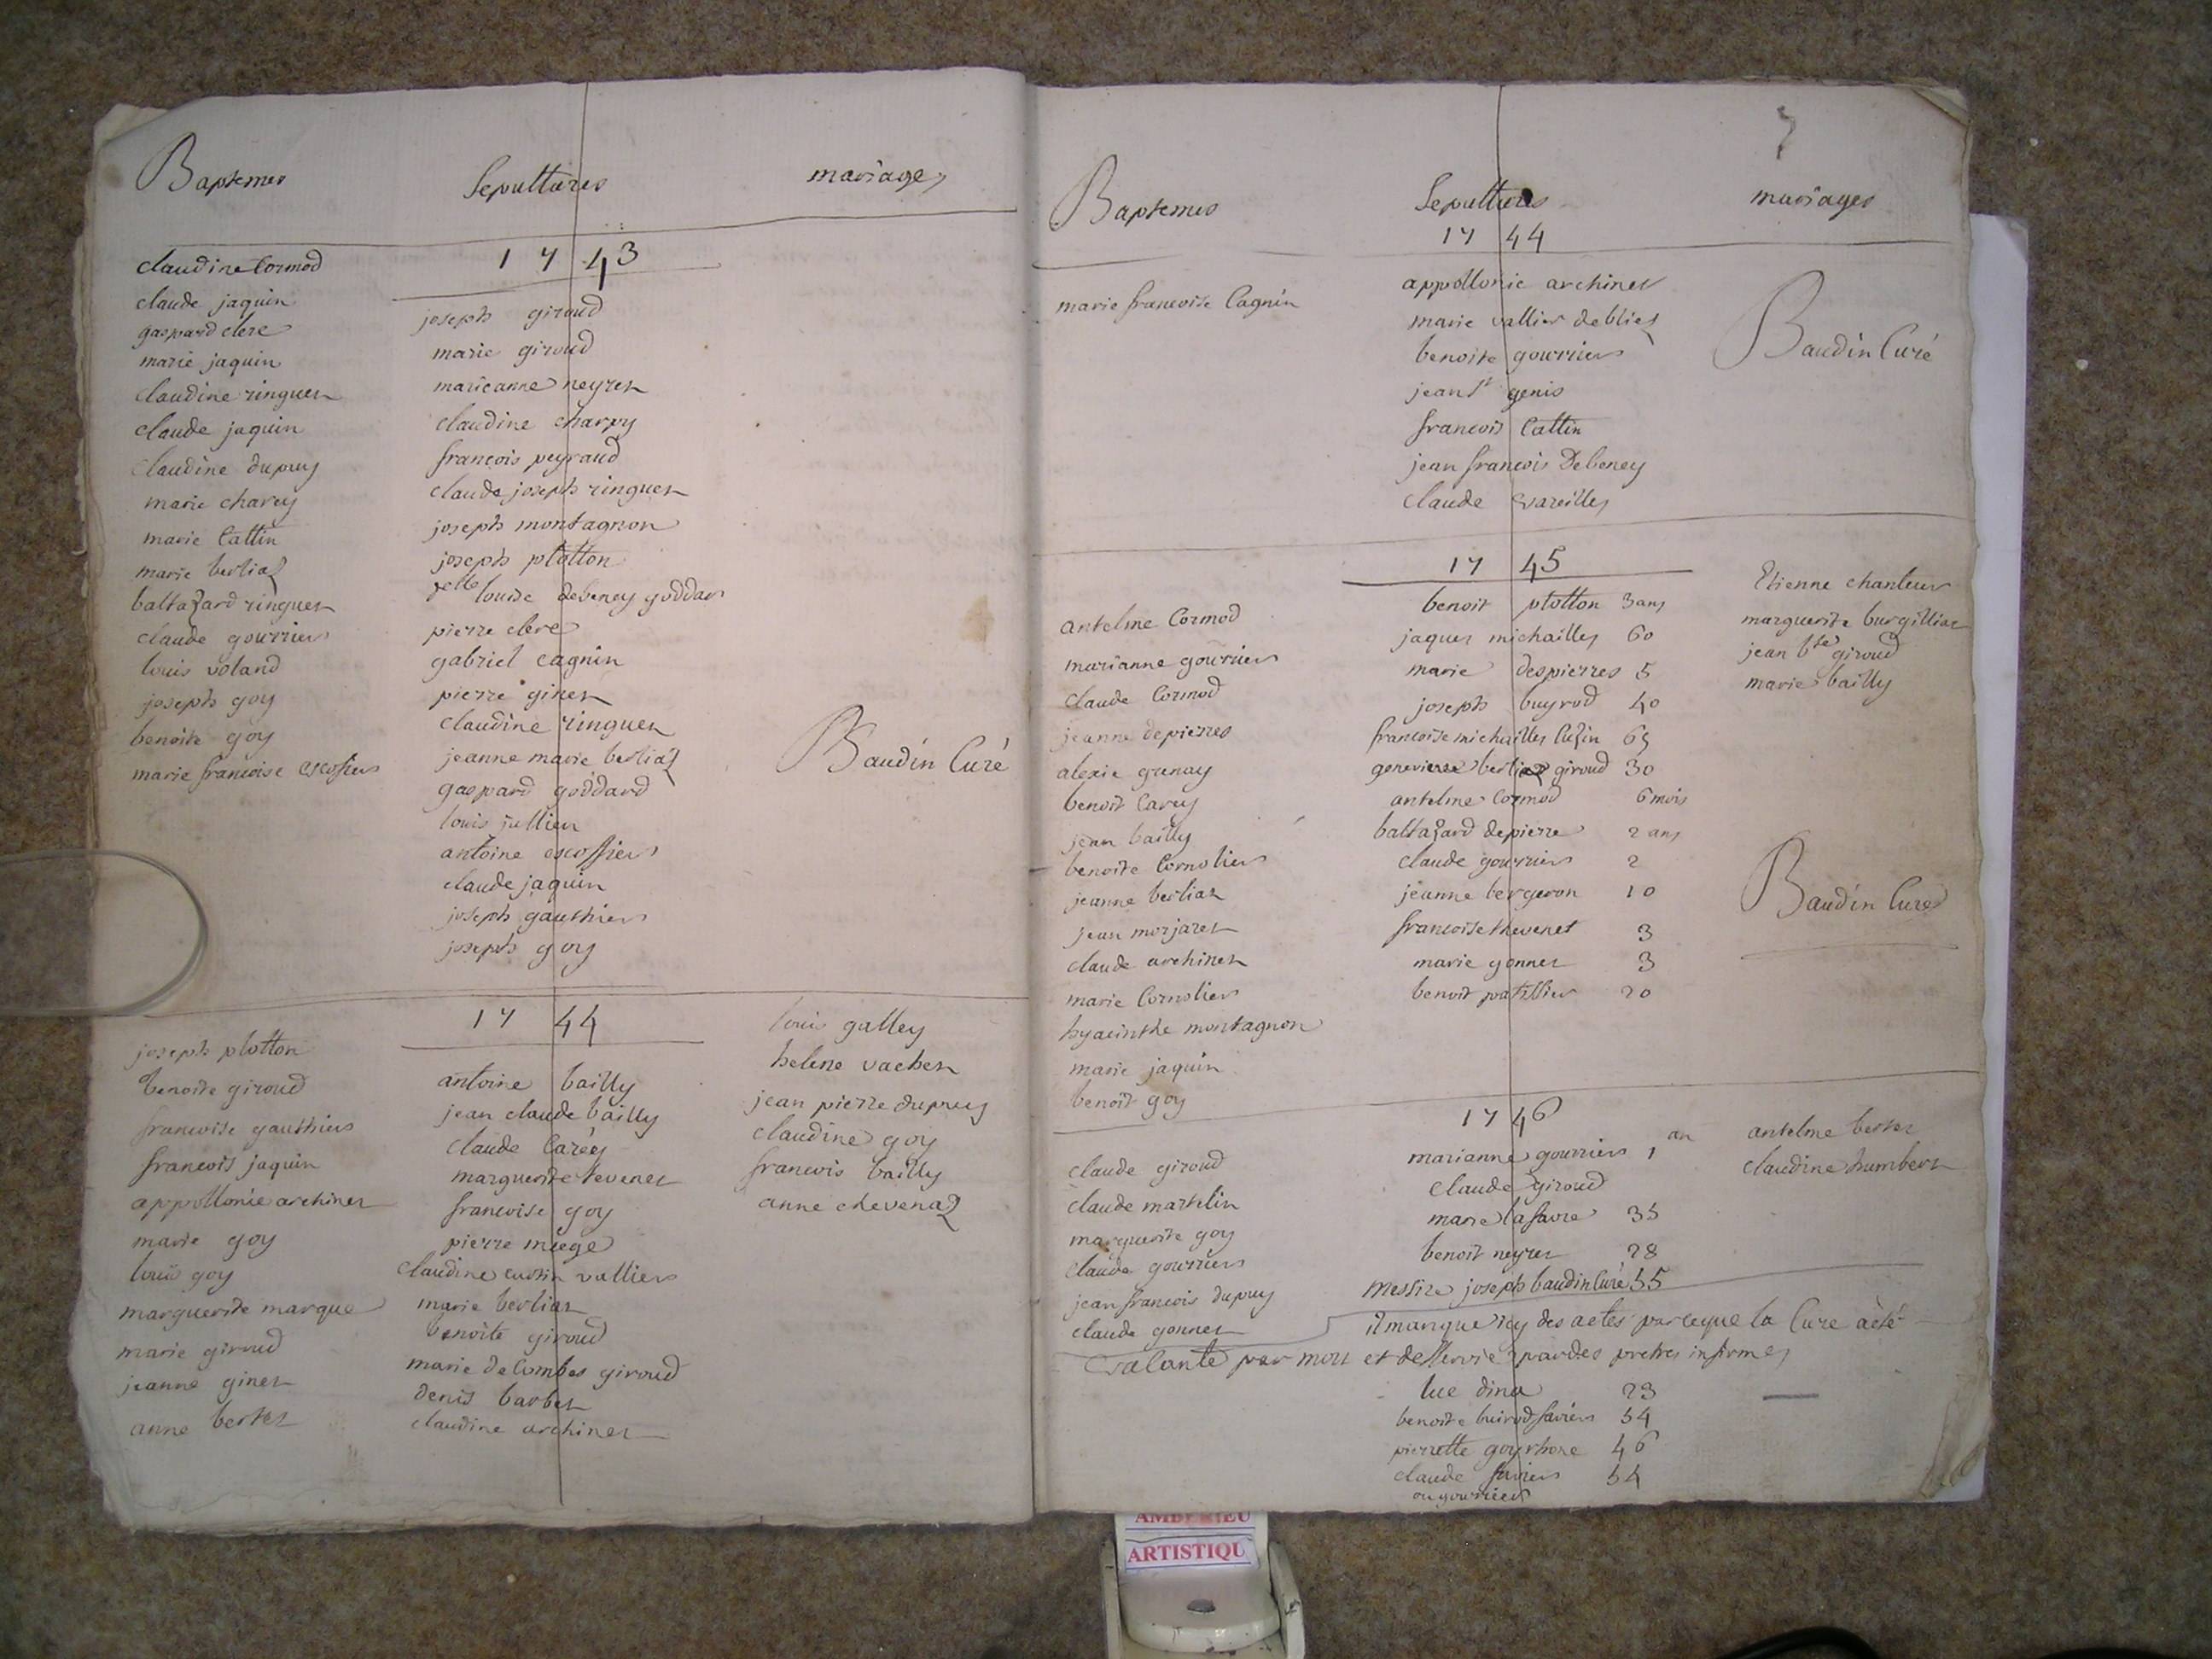 Baptemes
Sepultures
mariages
claudine Cormod
claude jaquin
gaspard clerc
marie jaquin
claudine ringuet
claude jaquin
claudine dupuy
marie charey
marie Cattin
marie berliaz
baltazard ringuet
claude gourrier
louis voland
joseph goy
benoite goy
marie francoise escofier
1743
joseph giroud
marie giroud
marieanne neyret
claudine charpy
francois peyraud
claude joseph ringuet
joseph montagnon
joseph plotton
louise debeney goddar
pierre clerc
gabriel cagnin
pierre ginet
claudine ringuet
jeanne marie berliaz
gaspard goddard
louis jullien
antoine escoffier
claude jaquin
joseph gauthier
joseph goy
Baudin Curé
joseph plotton
benoite giroud
francoise gauthier
francois jaquin
appollonie archinet
marie goy
louis goy
marguerite marque
marie giroud
jeanne ginet
anne bertet
1744
antoine bailly
jean claude bailly
claude Caréy
marguerite tevenet
francoise goy
pierre miege
claudine vallier
marie berliat
benoite giroud
marie deCombes giroud
denis barbet
claudine archinet
louis galley
helene vachet
jean pierre dupuy
claudine goy
francois bailly
anne chevenaz
7
Baptemes
Sepultures
mariages
1744
marie francoise Cagnin
appollonie archinet
marie vallier deblies
benoite gourrier
jean St genis
francois Cattin
jean francois Debeney
claude vareilles
Baudin Curé
antelme Cormod
marianne gourrier
claude Cormod
jeanne depierres
alexie grenay
benoit Carey
jean bailly
benoite Cornolier
jeanne berliat
jean morjaret
claude archinet
marie Cornolier
hyacinthe montagnon
marie jaquin
benoit goy
1745
benoit plotton 3 ans
jaques michailles 60
marie despierres 5
joseph buyrod 40
francoise michailles Luzin 65
genevieve berliaz giroud 30
antelme Cormod 6 mois
baltazard depierre 2 ans
claude gourrier 2
jeanne bergeron 10
francoise thevenet 3
marie gonnet 3
benoit patillier 20
Etienne chanteur
marguerite burgilliat
jean bte giroud
marie bailly
Baudin Curé
claude giroud
claude martelin
marguerite goy
claude gourrier
jean francois dupuy
claude gonnet
1746
marianne gourrier 1 an
claude giroud
marie lafavre 35
benoit neyret 28
Messire joseph baudin Curé 55
antelme bertet
claudine humbert
il manque icy des actes parceque la Cure a été
vacante par mort et desservie par des pretres infirmes
luc dina 23
benoite buirod favier 54
pierrette goy rhone 46
claude favier 54
ou gourrier
AMBERIEU
ARTISTIQU